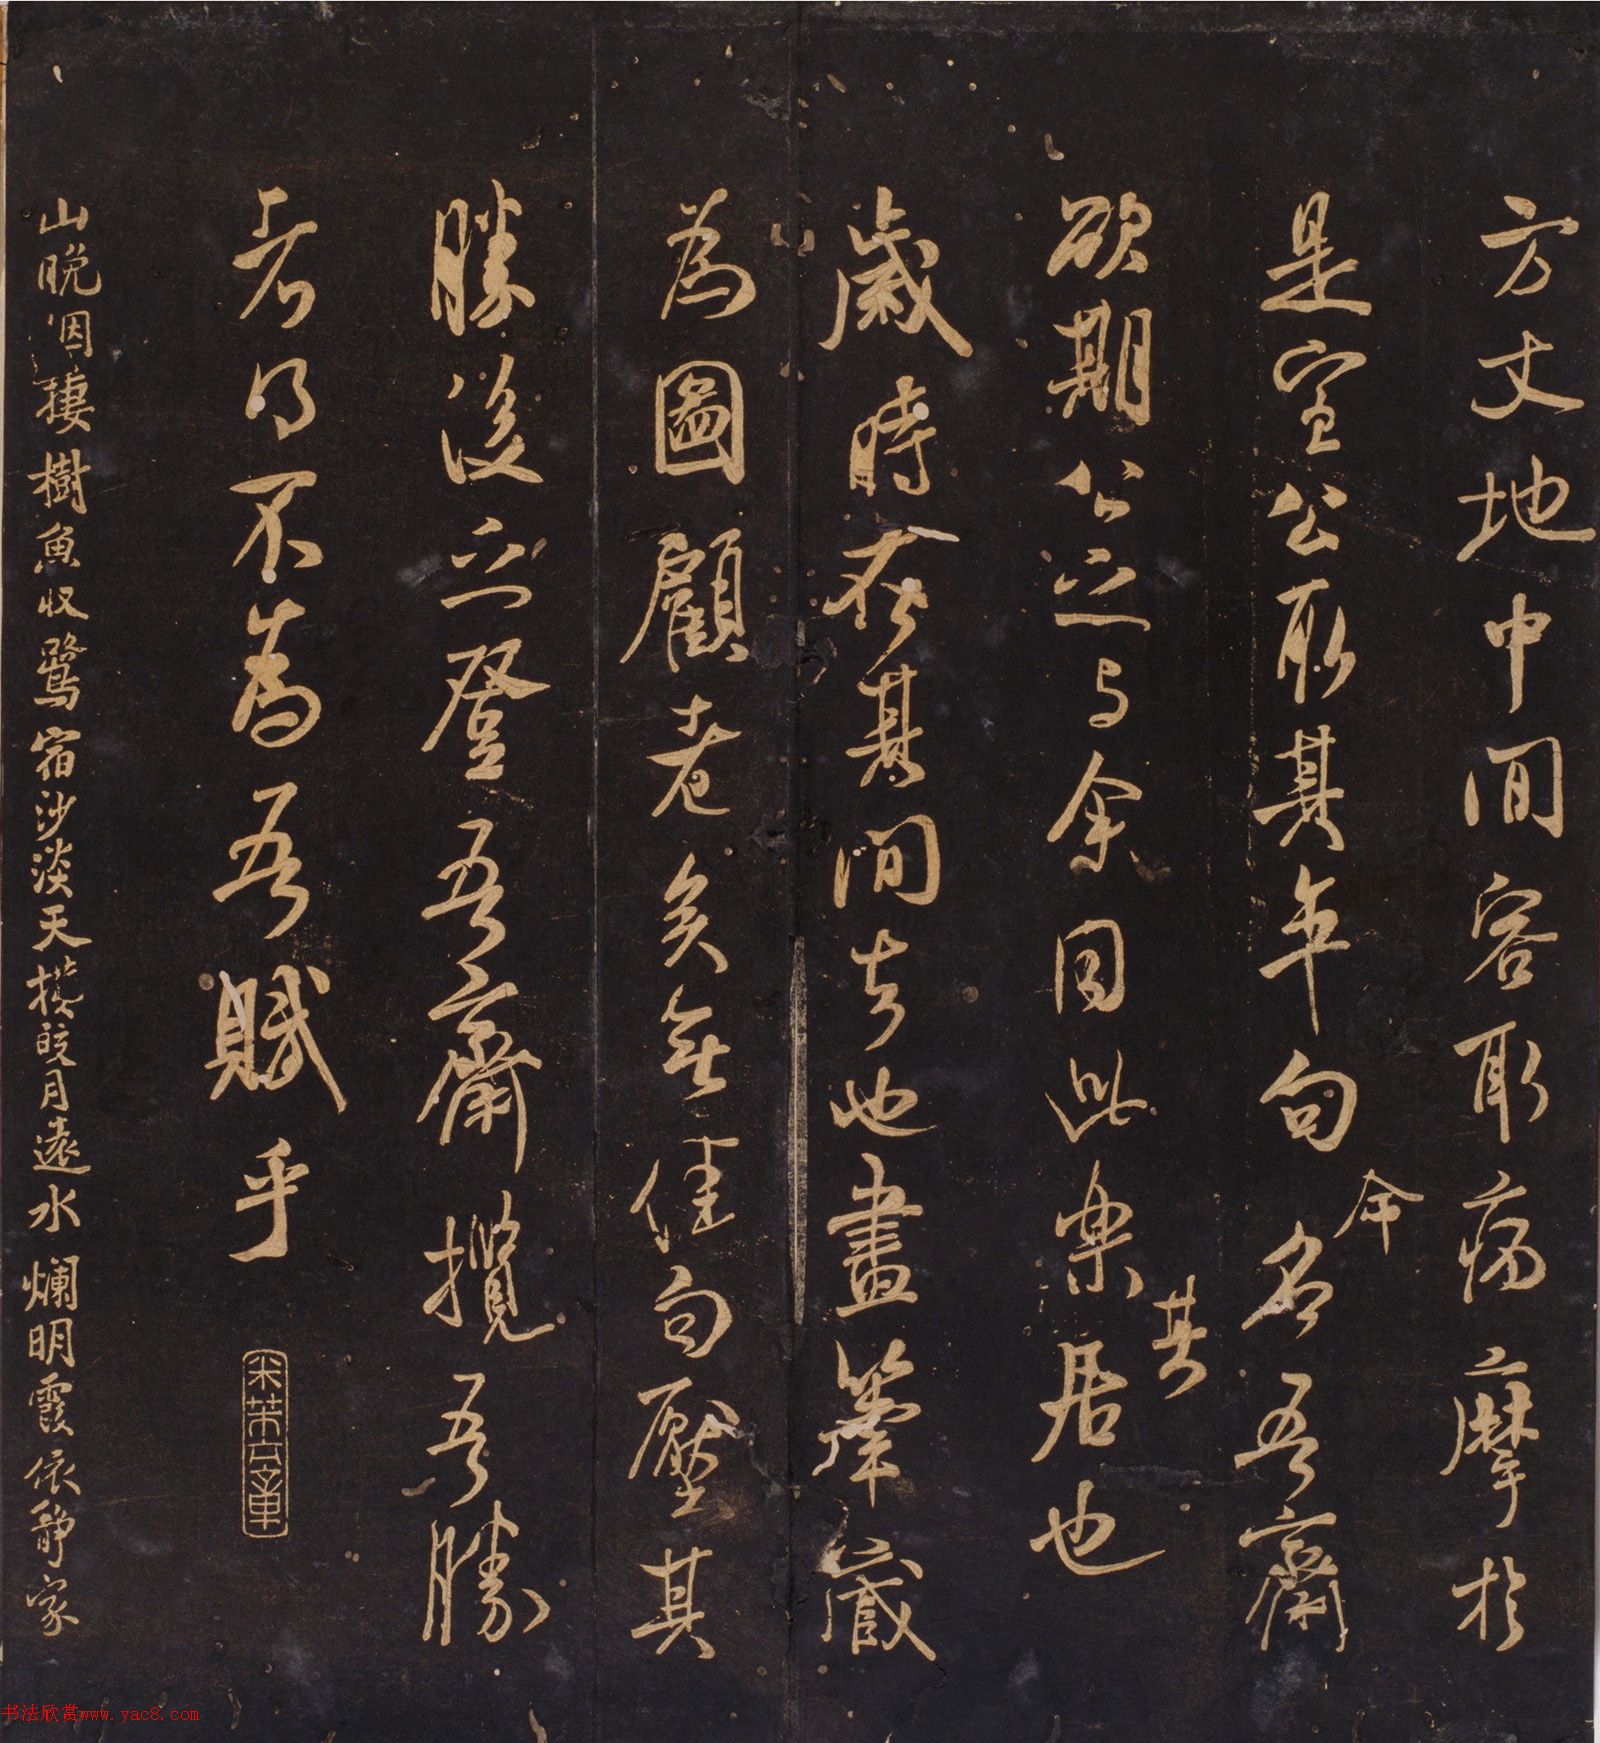 方丈地中間容取病摩於
是室公取其半句命名吾齋
欲期公之与余同此樂其居也
歲時在其間者也畫筆藏
為圖顧老矣無佳句壓其
勝後之登吾齋攬吾勝
者得不為吾賦乎
米芾之章
山晚烟捿樹魚收鷺宿沙淡天橫皎月遠水爛明霞依静家
书法欣赏www.yac8.com